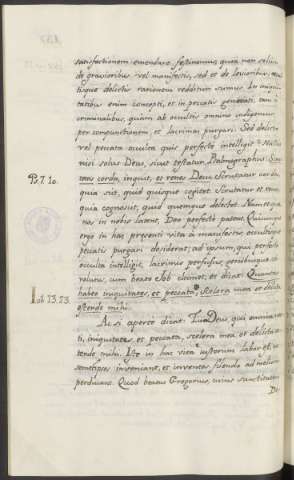 satisfactionem emendare festinamus quia non solum
de gravioribus, vel manifestis, sed et de levioribus,
tisque delictis rationem reddituri sumus. In iniqui-
tatibus enim concepti, et in peccatis generati, tam à
criminalibus, quàm ab occultis omnino indigemus
per compunctionem et lacrimas purgari. Sed delicta
vel peccata occulta quis perfectè intelligit? Nullus
nisi solus Deus, sicut testatur Psalmographus: Scru-
Ps. 7. 10. tans corda, inquit, et renes Deus. Scrutatur corda
quia scit, quid quisque cogitet. Scrutatur et renes
quia cognoscit, quid quemque delectet. Nam et quæ-
nas in nobis latent, Deo perfectè patent. Quicumque
ergo in hac præsenti vita à manifestis, occultisque
peccatis purgari desiderat, ad ipsum, qui perfectè
occulta intelligit, lacrimis perfusus, gemitibusque
volutus, cum beato Job clamet, et dicat: Quantas
Iob. 13. 23. habeo iniquitates, et peccata, scelera mea et delicta
ostende mihi.
Ac si apertè dicat: Tu Deus, qui omnia
ti, iniquitates, et peccata, scelera mea et delicta os-
tende mihi. Hic in hac vita iustorum labor est, ut
semetipsos inveniant, et inventos flendo ad meliora
perducant. Quod beatus Gregorius, unus sanctitatem
De